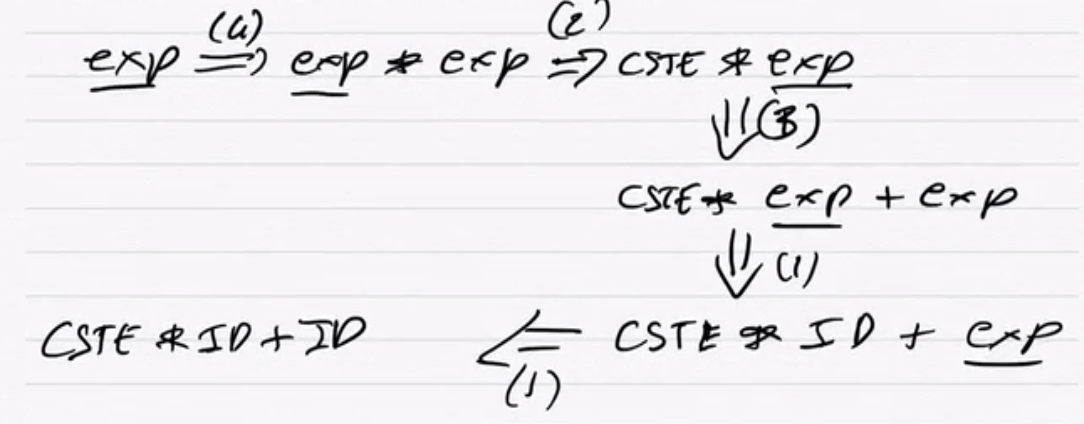 (4) (2)
exp ⇒ exp * exp ⇒ CSTE * exp
⇓ (3)
CSTE * exp + exp
⇓ (1)
CSTE * ID + ID ⇐ CSTE * ID + exp
(1)